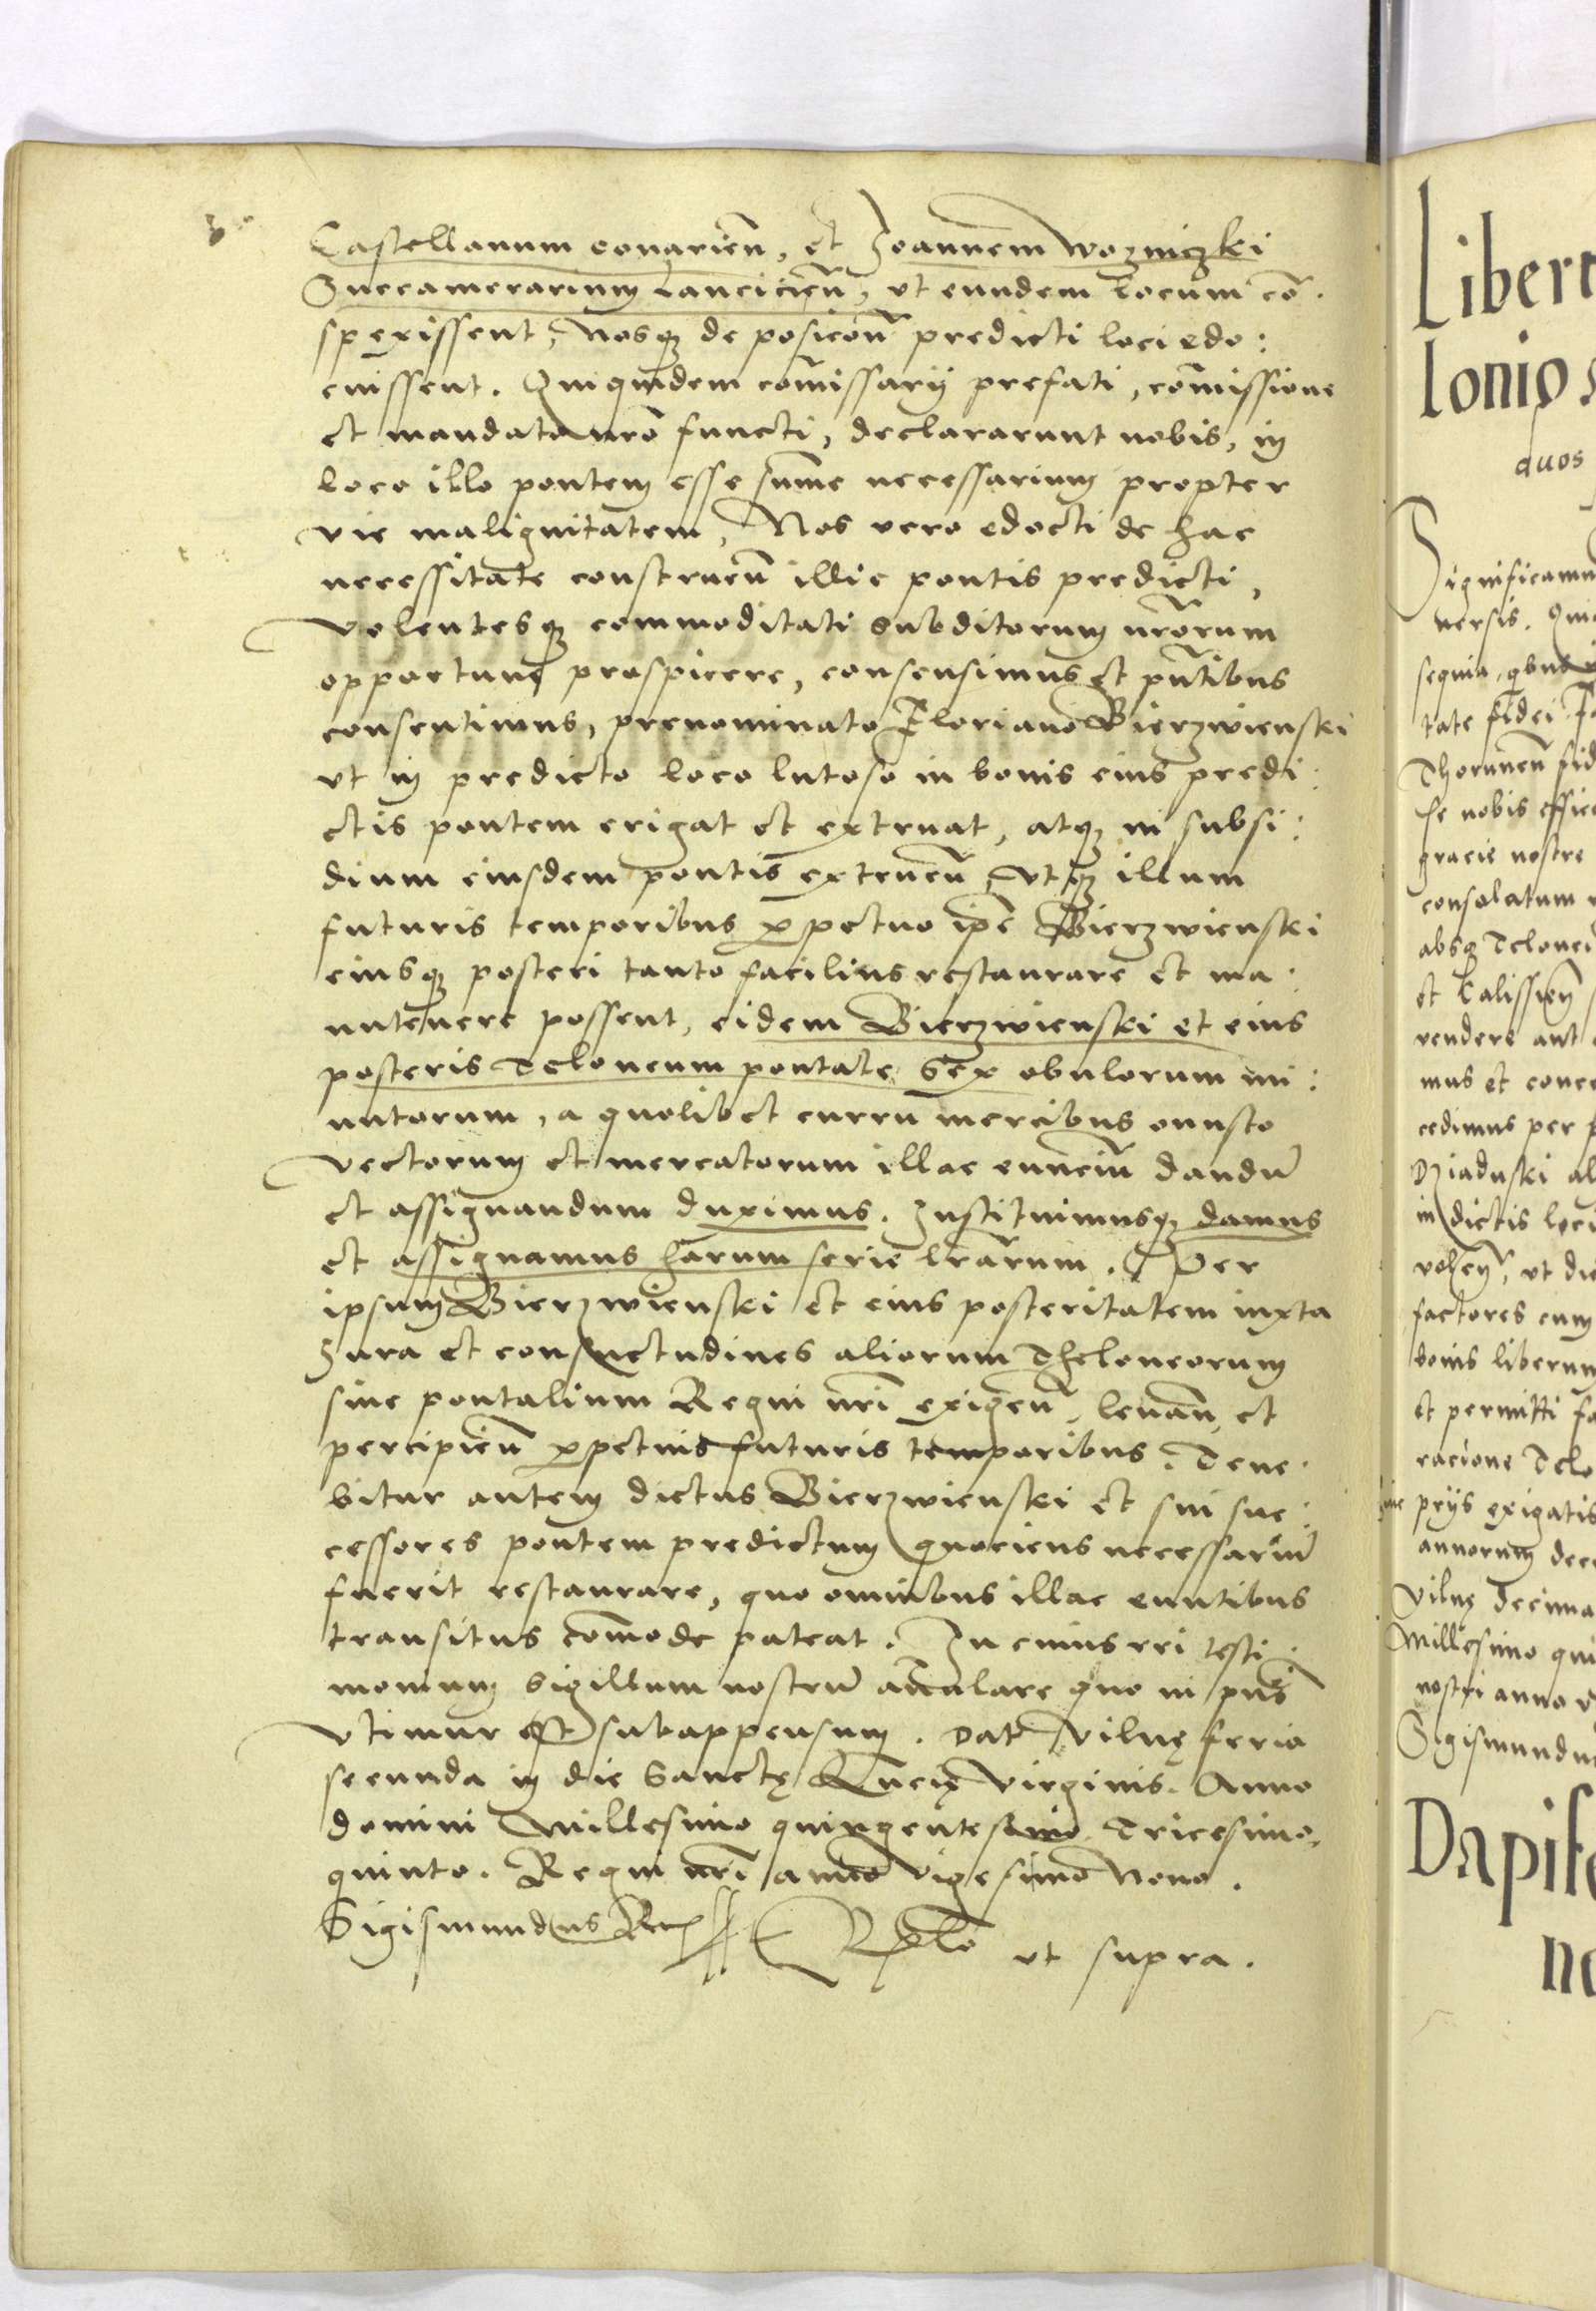 Castellanum conarień, et Joannem Wozniczki
Succamerarium Lancicień, vt eundem locum cō
spexissent, Nosq₃ de posicōń predicti loci edo:
cuissent. Quiquidem cōmissarij prefati, cōmissione
et mandato nrō functi, declararunt nobis, in
loco illo pontem esse summe necessarium propter
vie malignitatem, Nos vero edocti de hac
necessitate construeń illic pontis predicti,
volentesq₃ commoditati subditorum nrōrum
opportune prospicere, consensimus et pntibus
consentimus, prenominato Floriano Bierzwienski
vt in predicto loco lutoso in bonis eius predi:
ctis pontem erigat et extruat, atq₃ in subsi:
dium eiusdem pontis extrueń, vtq₃ illum
futuris temporibus ꝑpetuo ipē Bierzwienski
eiusq₃ posteri tanto facilius restaurare et ma:
nutenere possent, eidem Bierzwienski et eius
posteris Teloneum pontale sex obulorum mi:
nutorum, a quolibet curru mercibus onusto
vectorum et mercatorum illac eunciū dandū
et assignandum duximus. Instituimusq₃ damus
et assignamus harum serie lrārum. Per
ipsum Bierzwienski et eius posteritatem iuxta
Jura et consuetudines aliorum Theloneorum
siue pontalium Regni nri exigeń, levań, et
percipień ꝑpetuis futuris temporibus. Tene:
bitur autem dictus Bierzwienski et sui suc:
cessores pontem predictum quociens necessariū
fuerit restaurare, quo omnibus illac euntibus
transitus cōmode pateat. In cuius rei testi:
monium Sigillum nostrū annulare quo in pns̄
vtimur est subappensum. Dat Vilnę feria
secunda in die Sanctę Lucię virginis. Anno
domini Millesimo quingentesimo Tricesimo
quinto. Regni nri anno vigesimo Nono.
Sigismundus Rex Rlō ut supra.
Libert
lonio s
quos
Significamu
versis. Qui
sequia, qbus
tate fidei
Thoruneń fid
se nobis effic
gracie nostre
consolatum
absq₃ Telonei
et Calissień
vendere aut
mus et conce
cedimus per p
Dziaduski al
in dictis loci
voleń, vt di
factores cum
bonis liberum
et permitti fa
racione Telo
prijs exigatis
annorum dec
Vilnę decima
Millesimo qui
nostri anno v
Sigismundu
Dapife
no